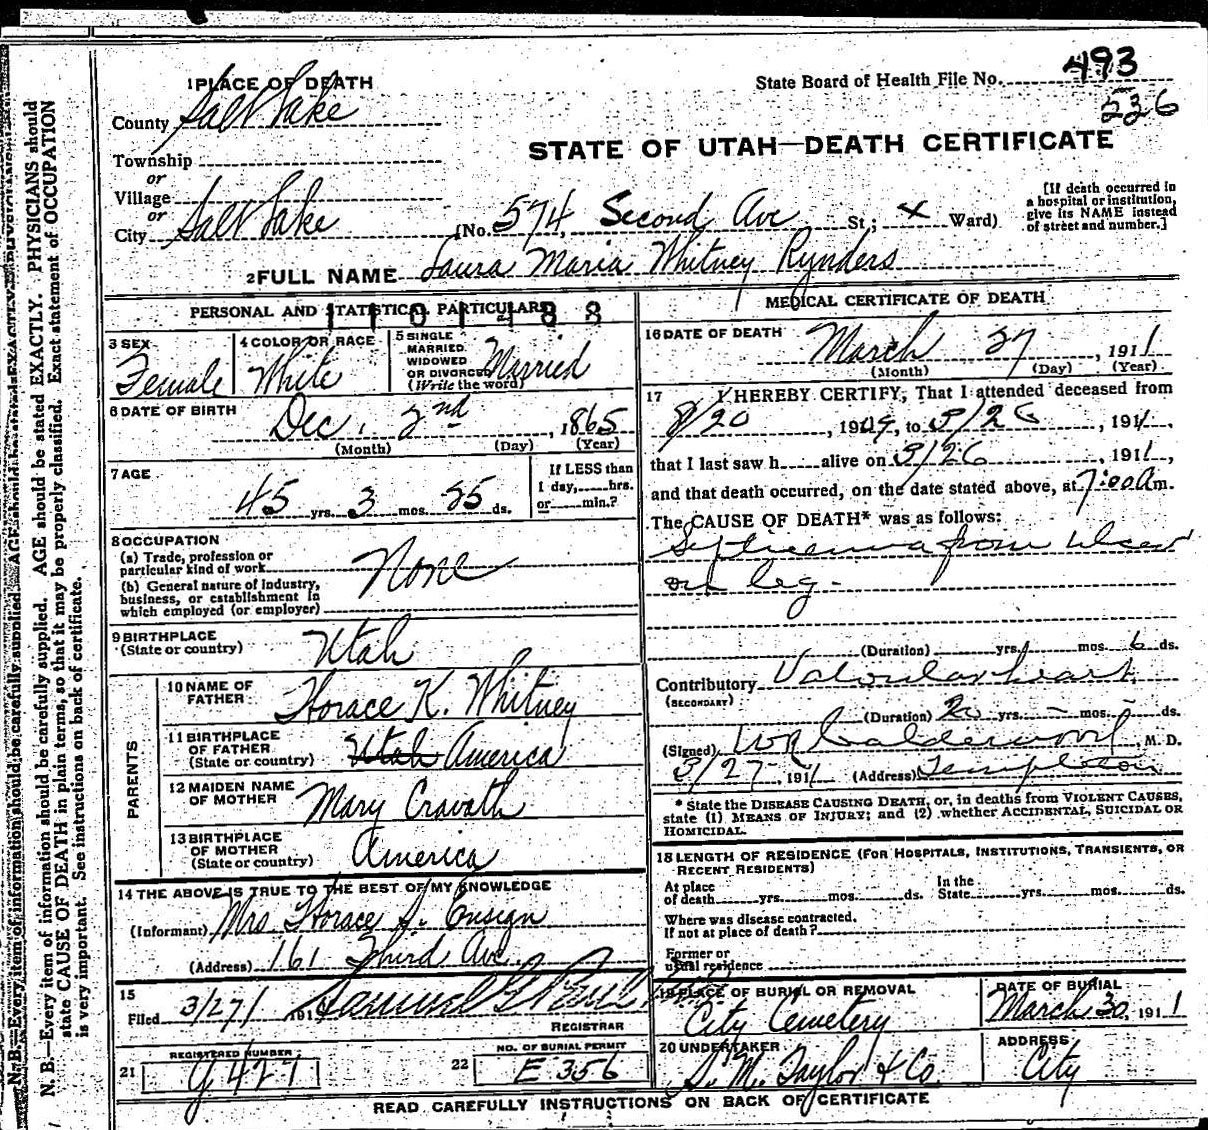 493
State Board of Health File No.
536
1 PLACE OF DEATH
County Salt Lake
STATE OF UTAH—DEATH CERTIFICATE
Township
or
Village
or
City Salt Lake (No. 574, Second Ave St.; 4 Ward)
[If death occurred in
a hospital or institution,
give its NAME instead
of street and number.]
2 FULL NAME Laura Maria Whitney Rynders
PERSONAL AND STATISTICAL PARTICULARS
3 SEX Female
4 COLOR OR RACE White
5 SINGLE
MARRIED
WIDOWED
OR DIVORCED Married
(Write the word)
6 DATE OF BIRTH
Dec. 2nd, 1865
(Month) (Day) (Year)
7 AGE
45 yrs. 3 mos. 25 ds.
If LESS than
1 day, hrs.
or min.?
8 OCCUPATION
(a) Trade, profession or
particular kind of work None
(b) General nature of industry,
business, or establishment in
which employed (or employer)
9 BIRTHPLACE
(State or country) Utah
PARENTS
10 NAME OF
FATHER Horace K. Whitney
11 BIRTHPLACE
OF FATHER
(State or country) Utah America
12 MAIDEN NAME
OF MOTHER Mary Cravath
13 BIRTHPLACE
OF MOTHER
(State or country) America
14 THE ABOVE IS TRUE TO THE BEST OF MY KNOWLEDGE
(Informant) Mrs Horace S. Ensign
(Address) 161 Third Ave
15
Filed 3/27/ 191
REGISTRAR
REGISTERED NUMBER
21 G 427
NO. OF BURIAL PERMIT
22 E 356
MEDICAL CERTIFICATE OF DEATH
16 DATE OF DEATH
March 27, 1911
(Month) (Day) (Year)
17 I HEREBY CERTIFY, That I attended deceased from
8/20, 1909, to 3/26, 1911,
that I last saw h alive on 3/26, 1911,
and that death occurred, on the date stated above, at 7:00 a m.
The CAUSE OF DEATH* was as follows:
Septicemia from Ulcer
on leg.
(Duration) yrs. mos. 6 ds.
Contributory Valvular heart
(SECONDARY)
(Duration) 20 yrs. – mos. – ds.
(Signed) W R Calderwood, M. D.
3/27, 1911 (Address) Templeton
* State the DISEASE CAUSING DEATH, or, in deaths from VIOLENT CAUSES,
state (1) MEANS OF INJURY; and (2) whether ACCIDENTAL, SUICIDAL OR
HOMICIDAL.
18 LENGTH OF RESIDENCE (FOR HOSPITALS, INSTITUTIONS, TRANSIENTS, OR
RECENT RESIDENTS)
At place
of death yrs. mos. ds. In the
State yrs. mos. ds.
Where was disease contracted.
If not at place of death?
Former or
usual residence
19 PLACE OF BURIAL OR REMOVAL
City Cemetery
DATE OF BURIAL
March 30, 1911
20 UNDERTAKER
S. M. Taylor & Co.
ADDRESS
City
READ CAREFULLY INSTRUCTIONS ON BACK OF CERTIFICATE
N. B.—Every item of information should be carefully supplied. AGE should be stated EXACTLY. PHYSICIANS should
state CAUSE OF DEATH in plain terms, so that it may be properly classified. Exact statement of OCCUPATION
is very important. See instructions on back of certificate.